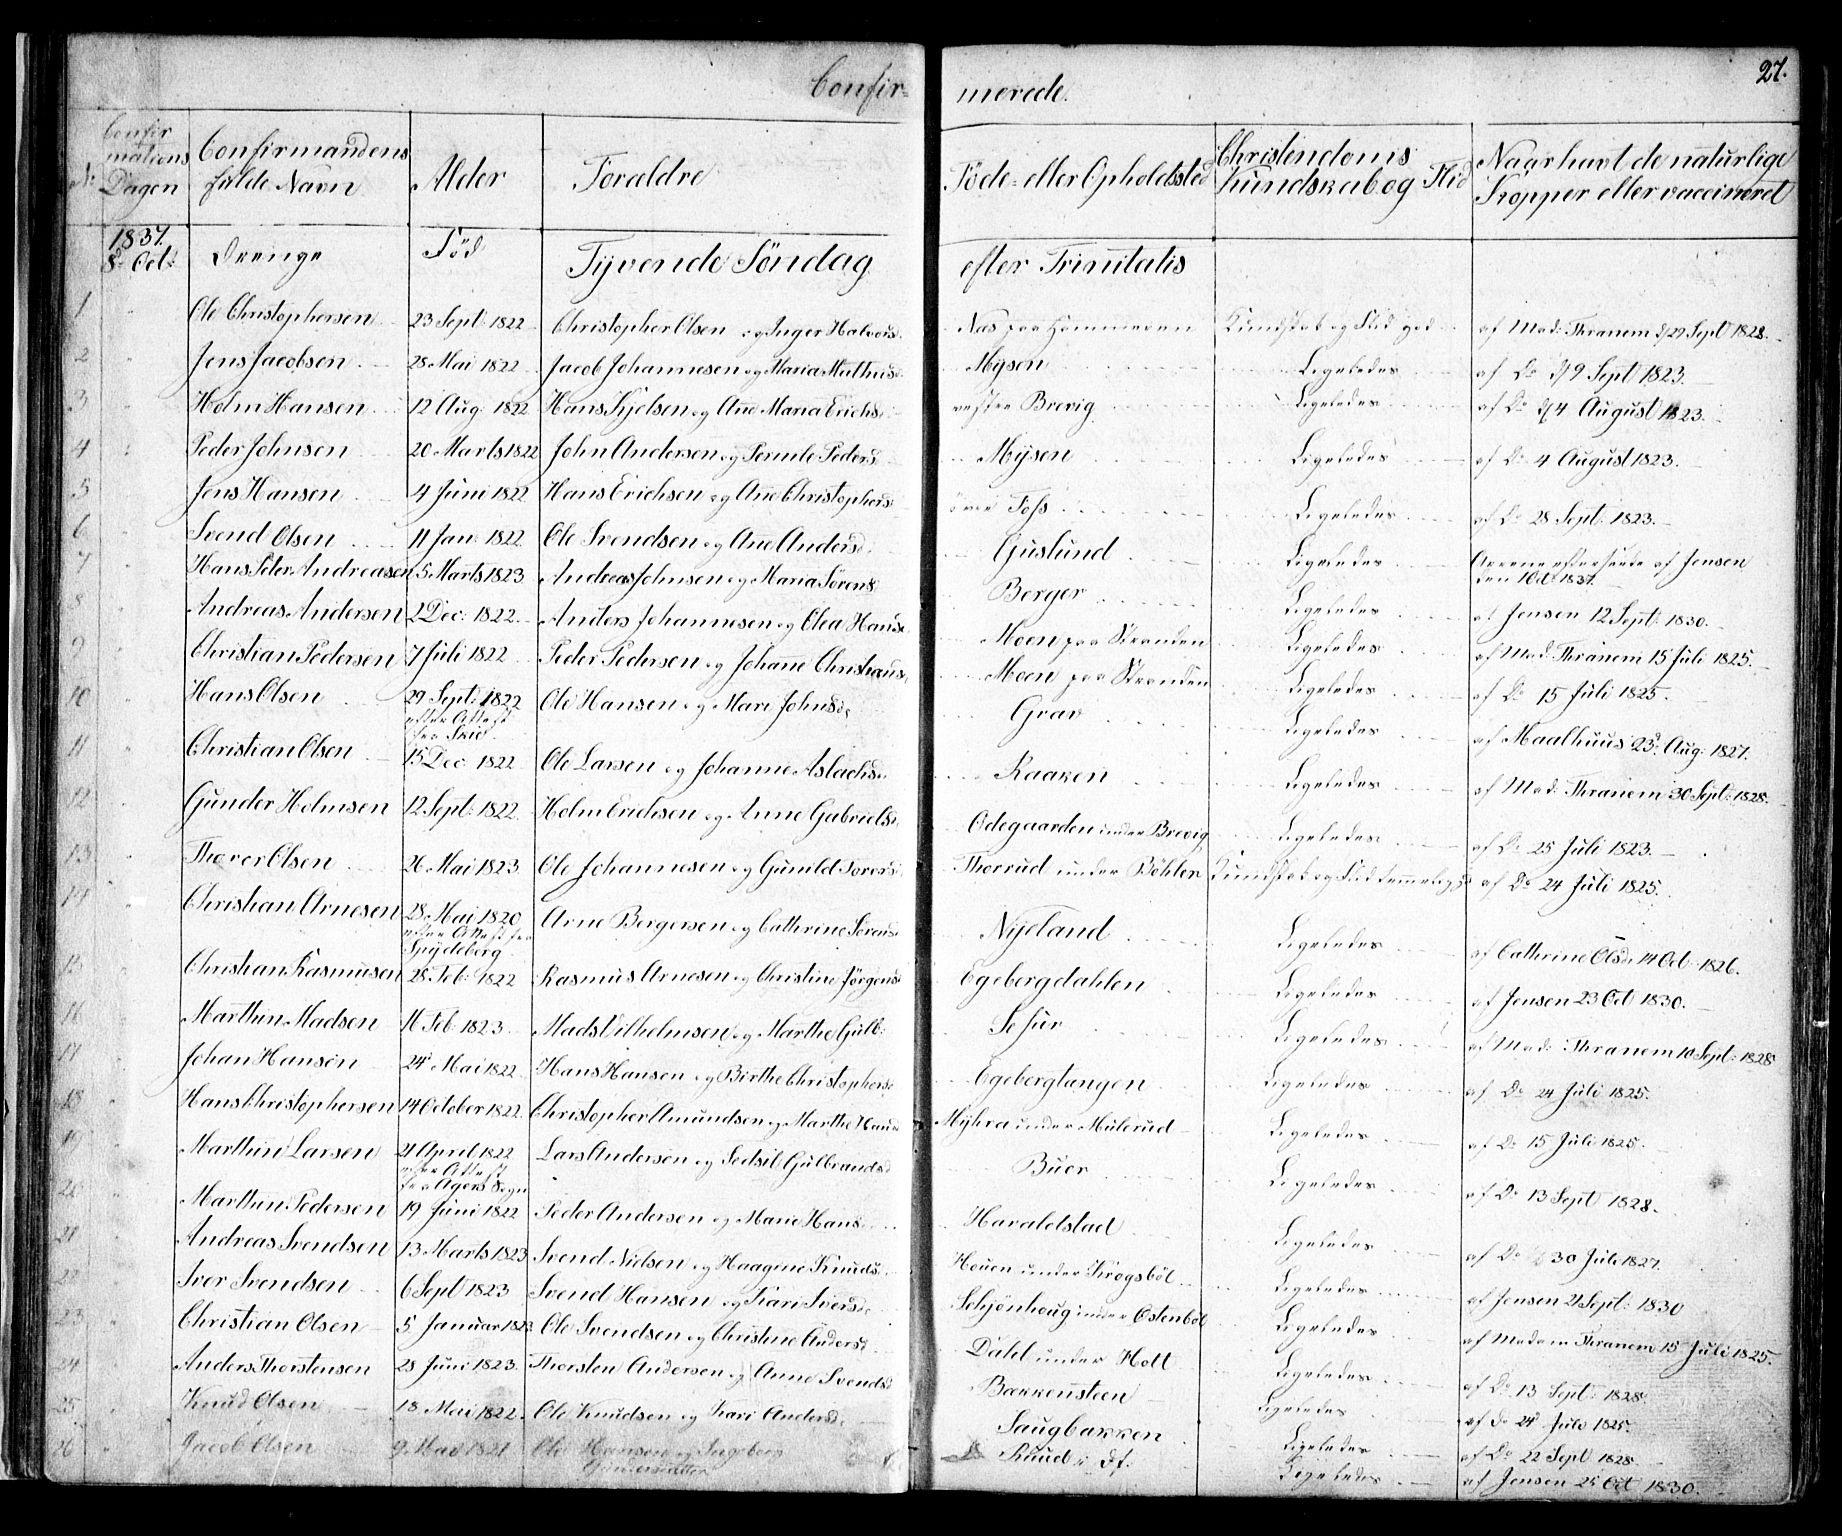 27.
Confir- merede.
No Confir mations Dagen Confirmandens fulde Navn Alder Foræeldre Föde- eller Opholdssted Christendoms Kundskab og Flid Naar havt de naturlige Kopper eller vaccineret
1837. 8de Octr Drenge Född Tyvende Söndag efter Trinitatis
1 Ole Christophersen 23 Sept: 1822 Christopher Olsen og Inger Halvors: Næs paa Hammeren Kundskab og Flid god af Mad: Thranem d/29 Sept 1828.
2 Jens Jacobsen 28 Mai 1822 Jacob Johannesen og Maria Mathisd: Mÿsen Ligeledes af Do d/9 Sept 1823.
3 Holm Hansen 12 Aug: 1822 Hans Kjelsen og Ane Maria Erichs: vestre Brevig Ligeledes af Do d/4 August 1823.
4 Peder Johnsen 20 Marts 1822 John Andersen og Pernile Peders: Mÿsen Ligeledes af Do 4 August 1823.
5 Jens Hansen 4 Juni 1822 Hans Erichsen og Ane Christophers: övre Foss Ligeledes af Do 28 Sept: 1823.
6 Svend Olsen 11 Jan: 1822 Ole Svendsen og Ane Anders: Guslund Ligeledes
7 Hans Peter Andreasen 5 Marts 1823 Andreas Johnsen og Maria Sörens: Berger Ligeledes Arrene efterseete af Jensen den 1 Oct: 1837.
8 Andreas Andersen 2 Dec: 1822. Anders Johannesen og Olea Hansd: Moen paa Stranden Ligeledes af Jensen 12 Sept: 1830.
9 Christian Pedersen 7 Juli 1822 Peder Pedersen og Johanne Christians: Moen paa Stranden Ligeledes af Mad: Thranem 15 Juli 1825.
10 Hans Olsen 29 Sept: 1822 efter Attest fra Skie Ole Hansen og Mari Johnsd: Grav Ligeledes af Do 15 Juli 1825.
11 Christian Olsen 15 Dec: 1822 Ole Larsen og Johanne Aslachsd: Kaaken Ligeledes af Maalhuus 23de Aug: 1827.
12 Gunder Holmsen 12 Sept: 1822 Holm Erichsen og Anne Gabriels: Ödegaarden under Brevig Ligeledes af Mad: Thranem 30 Sept: 1828.
13 Thorer Olsen 26 Mai 1823 Ole Johannesen og Gunild Torers: Thorrud under Böhler Kundskab og Flid temmelig god af Do 25 Juli 1823.
14 Christian Arnesen 28 Mai 1820 efter Attest fra Spydeberg Arne Bergersen og Cathrine Sörens: Nÿeland Ligeledes af Do 24 Juli 1825.
15 Christian Rasmusen 28 Feb: 1822 Rasmus Arnesen og Christine Jörgens: Egebergdahlen Ligeledes af Cathrine Olsd: 14 Oct: 1826.
16 Marthin Madsen 16 Feb 1823 Mads Vilhelmsen og Marthe Gulb: Ligeledes af Jensen 23 Oct 1830.
17 Johan Hansen 24de Mai 1822 Hans Hansen og Birthe Christophersd: Egebergtangen Ligeledes af Mad: Thranem 10 Sept: 1828
18 Hans Christophersen 14 October 1822. Christopher Amundsen og Marthe Hansd: Mÿhra under Mulerud Ligeledes af Do 24 Juli 1825.
19 Marthin Larsen 21 April 1822 efter Attest fra Agers Sogn Lars Andersen og Sedsil Gulbrandsd: Buer Ligeledes af Do 15 Juli 1825.
20 Marthin Pedersen 19 Juni 1822 Peder Andersen og Marie Hans: Haraldstad Ligeledes af Do 13 Sept 1828.
21 Andreas Svendsen 13 Marts 1823 Svend Nielsen og Haagene Knuds: Houen under Krogsböl Ligeledes af Do 30 Juli 1827.
22 Iver Svendsen 6 Sept 1823 Svend Hansen og Kari Ivers: Schjönhaug under Östenböl Ligeledes af Jensen 21 Sept: 1830
23 Christian Olsen 5 Januar 1823 Ole Svendsen og Christine Anders: Dahl under Holt Ligeledes af Madam Thranem 15 Juli 1825.
24 Anders Thorstensen 28 Juni 1823. Thorsten Andersen og Anne Svends: Bækkensteen Ligeledes af Do 13 Sept: 1828.
25 Knud Olsen 18 Mai 1822. Ole Knudsen og Kari Andersd: Saugbakken Ligeledes af Do 24de Juli 1825.
26 Jacob Olsen 9 Mai 1821 Ole Hansen og Ingeborg Gundersdatter Ruud Ligeledes af Do 22 Sept 1828
Ligeledes af Jensen 25 Oct 1830.